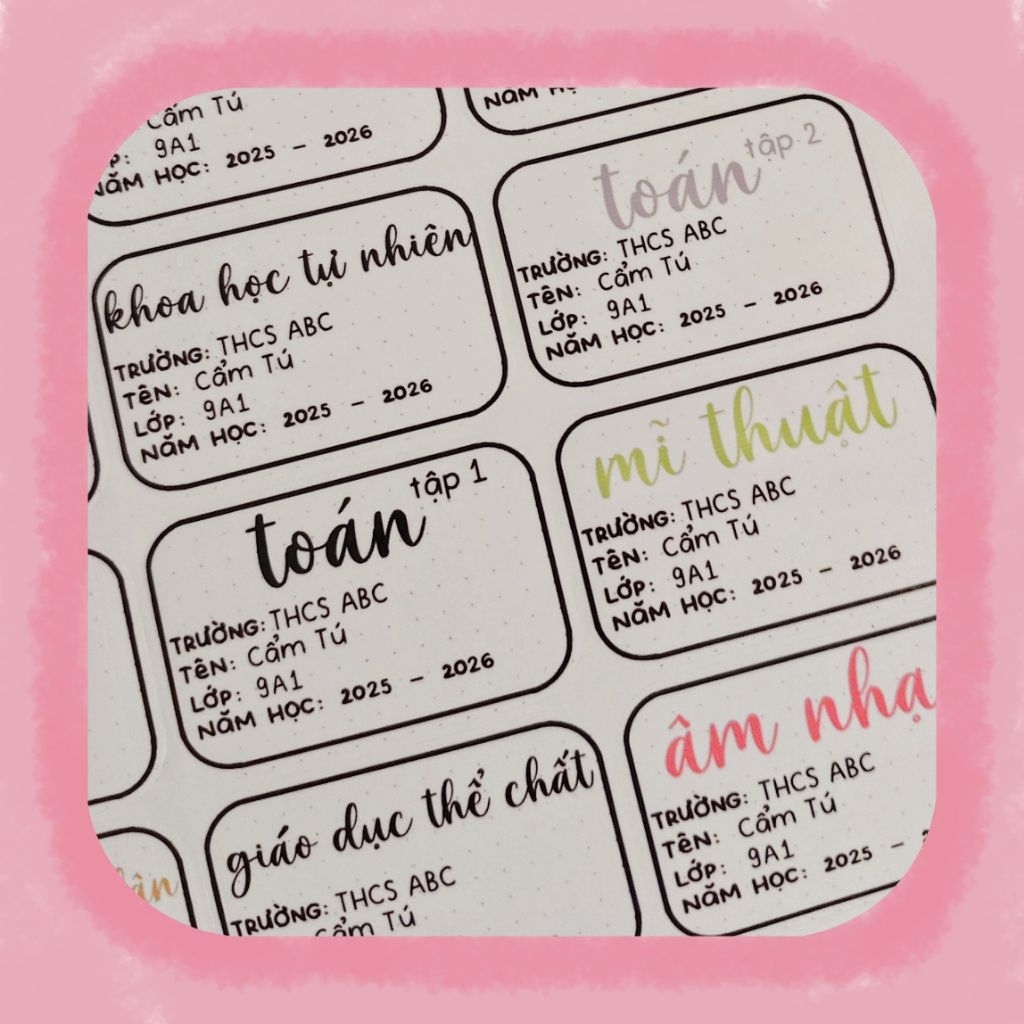 Cẩm Tú
9A1
NĂM HỌC: 2025 - 2026
NĂM
khoa học tự nhiên
TRƯỜNG: THCS ABC
TÊN: Cẩm Tú
LỚP: 9A1
NĂM HỌC: 2025 - 2026
toán tập 2
TRƯỜNG: THCS ABC
TÊN: Cẩm Tú
LỚP: 9A1
NĂM HỌC: 2025 - 2026
toán tập 1
TRƯỜNG: THCS ABC
TÊN: Cẩm Tú
LỚP: 9A1
NĂM HỌC: 2025 - 2026
mĩ thuật
TRƯỜNG: THCS ABC
TÊN: Cẩm Tú
LỚP: 9A1
NĂM HỌC: 2025 - 2026
giáo dục thể chất
TRƯỜNG: THCS ABC
Cẩm Tú
âm
TRƯỜNG: THCS ABC
TÊN: Cẩm Tú
LỚP: 9A1
NĂM HỌC: 2025 -